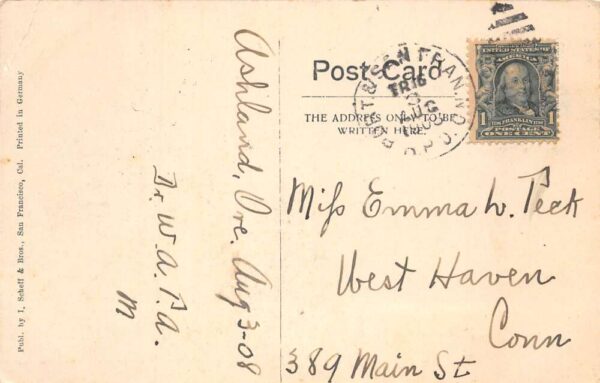 Publ. by I. Scheff & Bros., San Francisco, Cal. Printed in Germany
Ashland, Ore. Aug 3-08
Dr. W. A. P. A.
M
Post Card
THE ADDRESS ONLY TO BE
WRITTEN HERE
UNITED STATES OF
AMERICA
1 FRANKLIN 1
POSTAGE
ONE CENT
PORT & SAN FRAN
TR16
AUG
Miss Emma W. Peck
West Haven
Conn
389 Main St